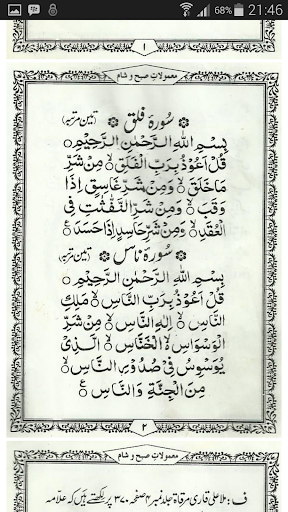 68% 21:46
١
معمولات صبح و شام
سُورۂ فلق (تین مرتبہ)
بِسْمِ اللهِ الرَّحْمٰنِ الرَّحِيْمِ
قُلْ اَعُوْذُ بِرَبِّ الْفَلَقِ ۙ مِنْ شَرِّ
مَا خَلَقَ ۙ وَمِنْ شَرِّ غَاسِقٍ اِذَا
وَقَبَ ۙ وَمِنْ شَرِّ النَّفّٰثٰتِ فِی
الْعُقَدِ ۙ وَمِنْ شَرِّ حَاسِدٍ اِذَا حَسَدَ
سُورۂ ناس (تین مرتبہ)
بِسْمِ اللهِ الرَّحْمٰنِ الرَّحِيْمِ
قُلْ اَعُوْذُ بِرَبِّ النَّاسِ ۙ مَلِكِ
النَّاسِ ۙ اِلٰهِ النَّاسِ ۙ مِنْ شَرِّ
الْوَسْوَاسِ ۙ الْخَنَّاسِ ۙ الَّذِیْ
يُوَسْوِسُ فِیْ صُدُوْرِ النَّاسِ ۙ
مِنَ الْجِنَّةِ وَ النَّاسِ
٢
معمولات صبح و شام
ف: ملا علی قاری مرقاۃ جلد نمبر ۴ صفحہ ۳۷۰ پر لکھتے ہیں کہ علامہ